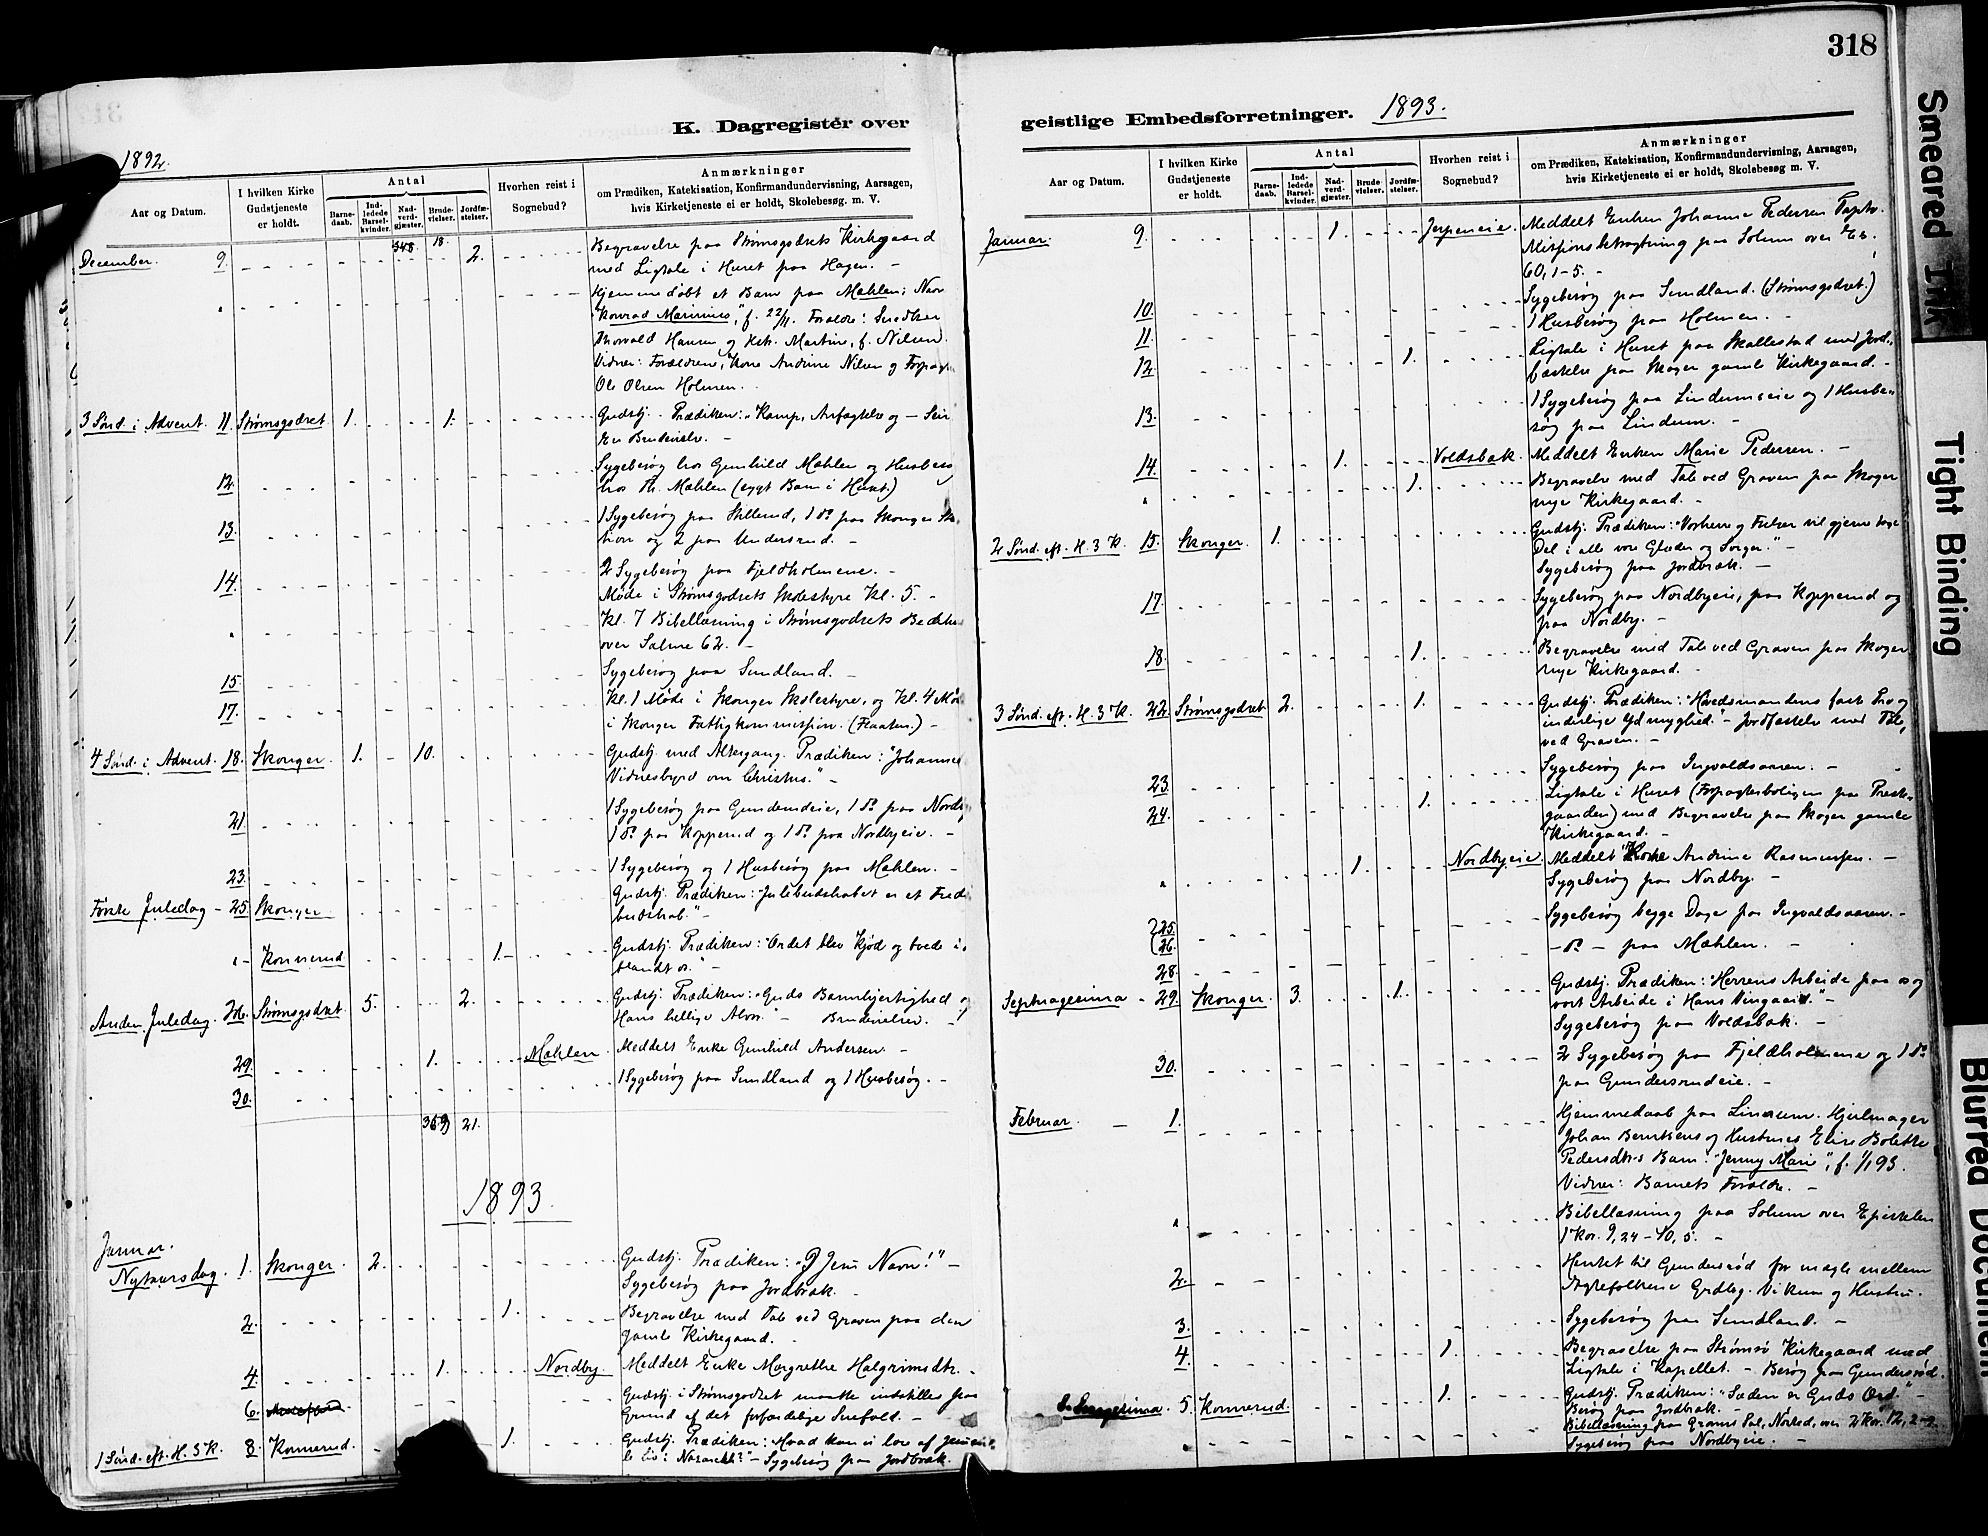 318
K. Dagregister over
1892.
Aar og Datum.
I hvilken Kirke
Gudstjeneste
er holdt.
Antal
Barne-
daab.
Ind-
ledede
Barsel-
kvinder.
Nad-
verd-
gjæster.
Brude-
vielser.
Jordfæ-
stelser.
Hvorhen reist i
Sognebud?
Anmærkninger
om Prædiken, Katekisation, Konfirmandundervisning, Aarsagen,
hvis Kirketjeneste ei er holdt, Skolebesøg m. V.
348 18.
December. 9. 2. Begravelse paa Strømsgodsets Kirkegaard
med Ligtale i Huset paa Hagen. -
Hjemmedøbt et Barn paa Mæhlen; Navn
"Konrad Marinius", f. 22/11. Forældre: Snedker
Thorvald Hansen og Kstr. Martine, f. Nilsen.
Vidner: Forældrene, Kone Andrine Nilsen og
Ole Olsen Holmen.
3 Sønd. i Advent. 11. Strømsgodset 1. 1. Gudstj. Prædiken: "Kamp, Anfægtelse og - Seir
En Brudevielse. -
12. Sygebesøg hos Gunhild Mæhlen og Husbesøg
hos Th. Mæhlen (sygt Barn i Huset)
13. 1 Sygebesøg paa Skillerud, 1 do paa Skoger
tion og 2 paa Undersrud. -
14. 2 Sygebesøg paa Fjeldholmene. -
Møde i Strømsgodsets Skolestyre Kl. 5. -
" Kl. 7 Bibellæsning i Strømsgodsets
over Salme 62. -
15. Sygebesøg paa Sundland. -
17. Kl. 1 Møde i Skouger Skolestyre, og Kl. 4
i Skouger Fattigkommission. (Flaaten) -
4 Sønd. i Advent. 18. Skouger. 1. 10. Gudstj. med Altergang. Prædiken: "Johannes
Vidnesbyrd om Christus." -
21. 1 Sygebesøg paa 1 do paa Nordby
1 do paa Kopperud og 1 do paa Nordbyeie. -
23. 1 Sygebesøg og 1 Husbesøg paa Mæhlen. -
Første Juledag - 25. Skouger Gudstj. Prædiken: "Julebudskabet er et
budskab." -
" - Konnerud 1. Gudstj. Prædiken: "Ordet blev Kjød og boede i-
blandt os." -
Anden Juledag. 26. Strømsgodset. 5. 2. Gudstj. Prædiken: "Guds Barmhjertighed og
Hans hellige Alvor." - Brudevielser. -
29. 1. Mæhlen Meddelt Enke Gunhild Andersen. -
30. 1 Sygebesøg paa Sundland og 1 Husbesøg. -
359 21.
1893.
Januar.
Nytaarsdag. 1. Skouger. 2. Gudstj. Prædiken: "I Jesu Navn!" -
Sygebesøg paa Jordbræk. -
2. 1. Begravelse med Tale ved Graven paa den
gamle Kirkegaard. -
4. 1. Nordby. Meddelt Enke Margrethe Halgrimsdtr. -
6. Gudstj. i Strømsgodset maatte indstilles paa
Grund af det forfærdelige Snefald. -
1 Sønd. eft. H. 3 K. 8. Konnerud. 1. Gudstj. Prædiken: "Hvad kan vi lære af
Liv i Nazareth?" - Sygebesøg paa Jordbræk.
geistlige Embedsforretninger. 1893.
Aar og Datum.
I hvilken Kirke
Gudstjeneste
er holdt.
Antal
Barne-
daab.
Ind-
ledede
Barsel-
kvinder.
Nad-
verd-
gjæster.
Brude-
vielser.
Jordfæ-
stelser.
Hvorhen reist i
Sognebud?
Anmærkninger
om Prædiken, Katekisation, Konfirmandundervisning, Aarsagen,
hvis Kirketjeneste ei er holdt, Skolebesøg m. V.
Januar. 9. 1. Jerpeneie. Meddelt Enken Johanne Pedersen
Missionsbetragtning paa Solum over Es.
60, 1-5. -
10. Sygebesøg paa Sundland. (Strømsgodset.)
11. 1 Husbesøg paa Holmen. -
12. 1. Ligtale i Huset paa Skallestad med Jord-
fæstelse paa Skoger gamle Kirkegaard. -
13. 1 Sygebesøg paa Lindumseie og 1 Husbe-
søg paa Lindum. -
14. 1. Voldsbæk. Meddelt Enken Marie Pedersen. -
" 1. Begravelse med Tale ved Graven paa Skoger
nye Kirkegaard. -
2 Sønd. eft. H. 3 K. 15. Skouger. 1. Gudstj. Prædiken: "Vorherre og Frelser vil gjerne tage
Del i alle vore Glæder og Sorger." -
Sygebesøg paa Jordbræk. -
17. Sygebesøg paa Nordbyeie, paa Kopperud og
paa Nordby. -
18. 1. Begravelse med Tale ved Graven paa Skoger
nye Kirkegaard. -
3 Sønd. eft. H. 3 K. 22. Strømsgodset 2. 1. Gudstj. Prædiken: "Høvedsmandens faste Tro og
inderlige Ydmyghed." - Jordfæstelse med Tale
ved Graven. -
23. Sygebesøg paa Ingvaldsaasen. -
24. 1. Ligtale i Huset (Forpagterboligen paa Præste-
gaarden) med Begravelse paa Skoger gamle
Kirkegaard. -
" 1. Nordbyeie. Meddelt Kone Andrine Rasmussen. -
Sygebesøg paa Nordby. -
25.
26. Sygebesøg begge Dage paa Ingvaldsaasen. -
28. - do - paa Mæhlen. -
Septuagesima - 29. Skouger. 3. 1. Gudstj. Prædiken: "Herrens Arbeide paa os og
vort Arbeide i Hans Vingaard." -
Sygebesøg paa Voldsbæk. -
30. 2 Sygebesøg paa Fjeldholmene og 1 do
paa Gundersrudeie. -
Februar. - 1. Hjemmedaab paa Lindum. Hjulmager
Johan Berntsens og Hustrues Elise Bolette
Pedersdtr.s Barn: "Jenny Marie", f. 1/1 93.
Vidner: Barnets Forældre. -
" Bibellæsning paa Solum over Epistelen
1 Kor. 9, 24 - 10, 5. -
2. Hentet til Gundersrød for mægle mellem
Ægtefolkene Grdbg. Vikum og Hustru.
3. Sygebesøg paa Sundland. -
4. 1. Begravelse paa Strømsø Kirkegaard med
Ligtale i Kapellet. - Besøg paa Gundersrød.
5. Konnerud. 1. Gudstj. Prædiken: "Sæden er Guds Ord." -
Besøg paa Jordbræk. -
Bibellæsning paa Sal, over 2 Kor. 12, 2-9.
Sygebesøg paa Nordbyeie. -
Smeared Ink
Tight Binding
Blurred Document